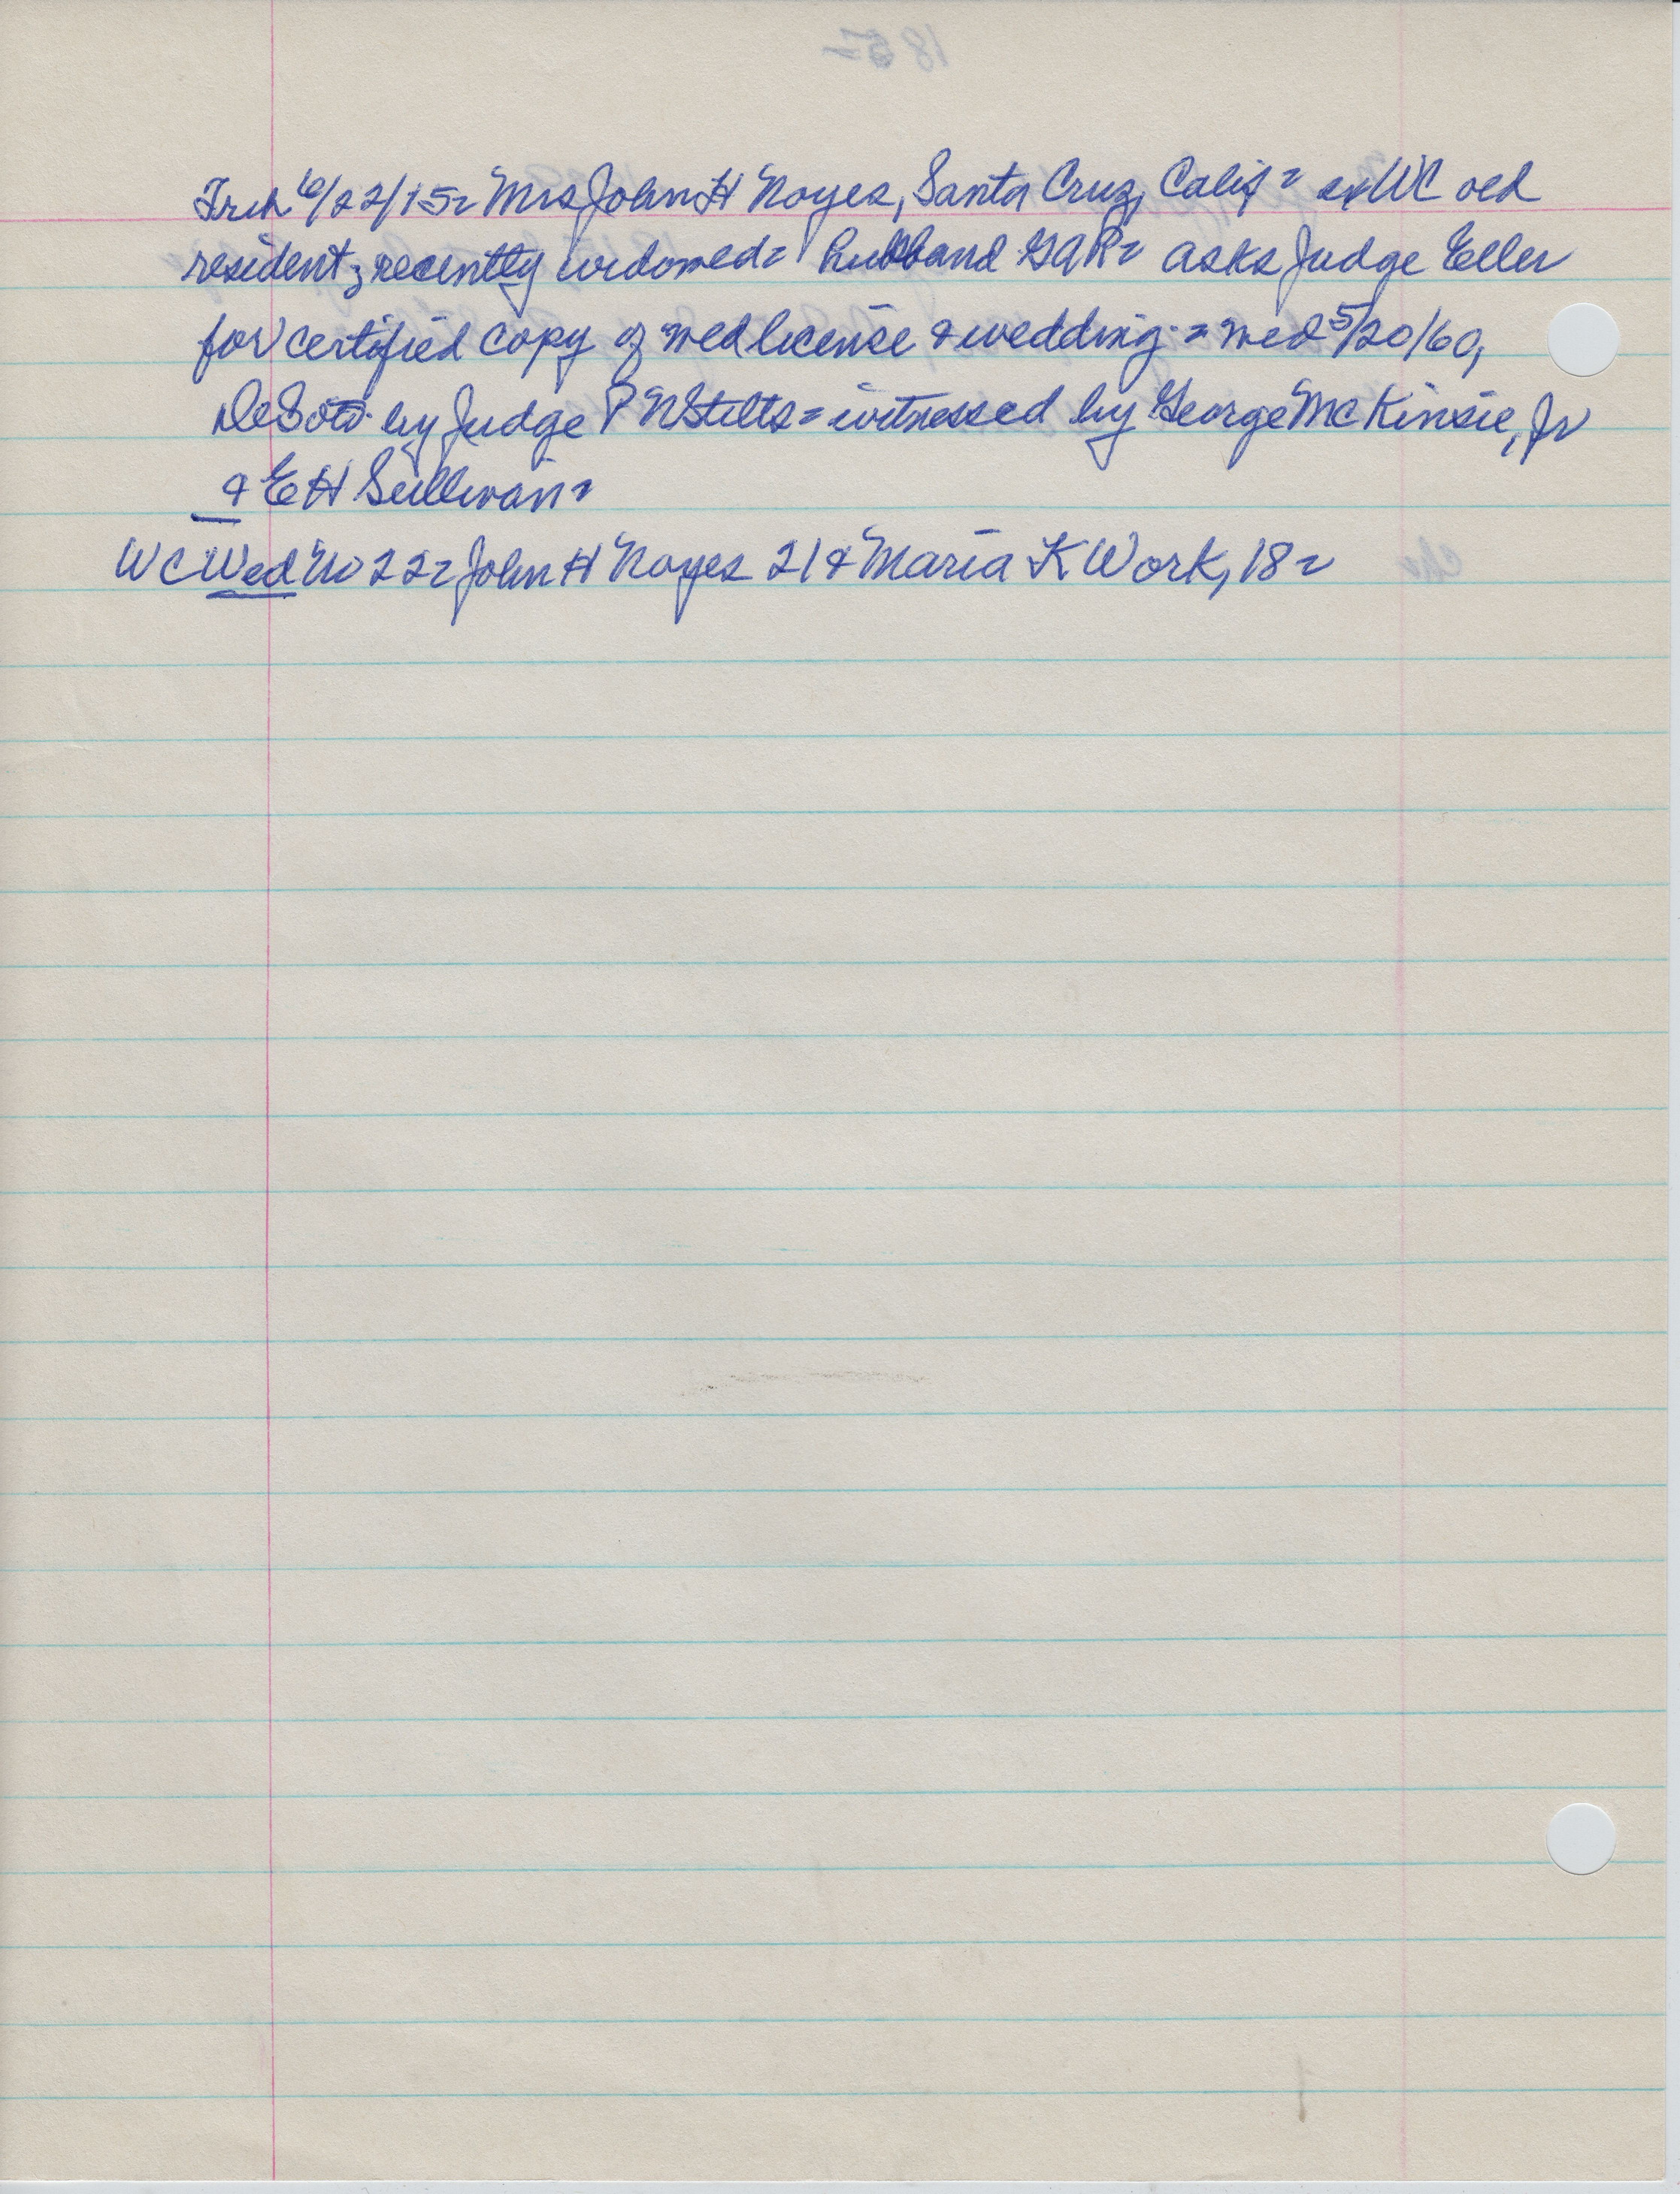 Trib 6/22/15= Mrs John H Noyes, Santa Cruz, Calif= ex WC old
resident, recently widowed= husband GAR= asks Judge Eller
for certified copy of wed license & wedding = wed 5/20/60,
DeSoto by Judge P N Stilts= witnessed by George McKinsie, Jr
& E H Sullivan=
WC Wed No 22= John H Noyes 21 & Maria K Work, 18=